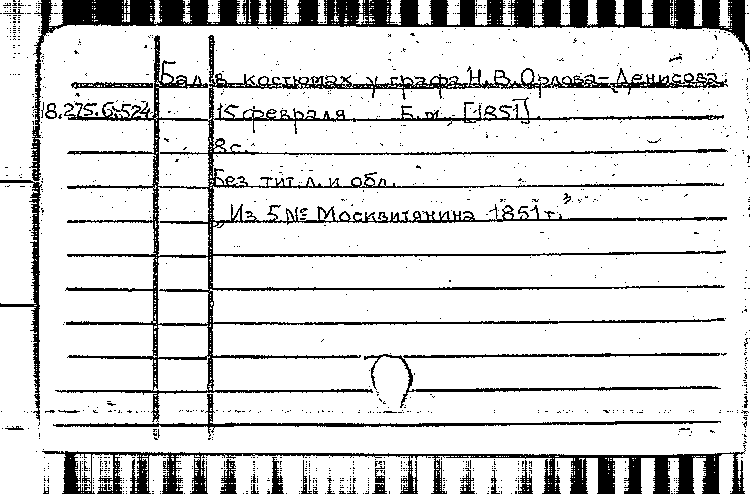 Бал в костюмах у графа Н.В. Орлова-Денисова.
18.275.6.524 15 февраля. Б.м., [1851].
8 с.
Без тит. л. и обл.
„Из 5 № Москвитянина 1851 г.”